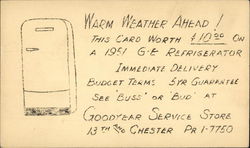 WARM WEATHER AHEAD!
THIS CARD WORTH $10.00 ON
A 1951 G-E REFRIGERATOR
IMMEDIATE DELIVERY
BUDGET TERMS 5 YR GUARANTEE
SEE "BUSS" OR "BUD" AT
GOODYEAR SERVICE STORE
13TH AND CHESTER PR 1-7750